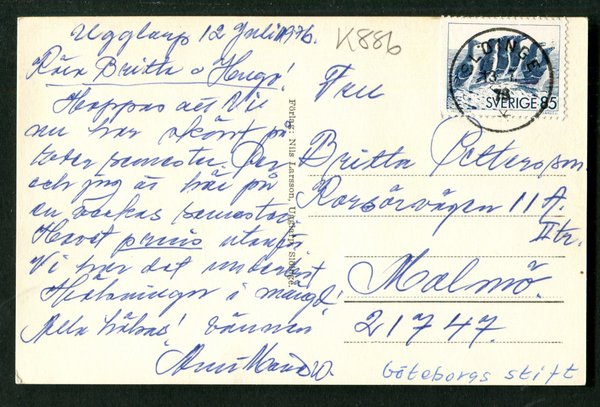 Ugglarp 12 Juli 1976.
Kära Britta o Helge!
Hoppas att Ni
nu har skönt på
Eder semester. Per
och jag är här på
en veckas semester
Havet precis utanför
Vi har det underbart
Hälsningar i mängd!
Alla hälsar! vännen
K886
Fru
Britta Petterson
Korsörvägen 11 A.
II tr.
Malmö.
21747.
Göteborgs stift
Förlag: Nils Larsson, Ugglarp, Slöinge.
SLÖINGE
13 7
76
SVERIGE 85